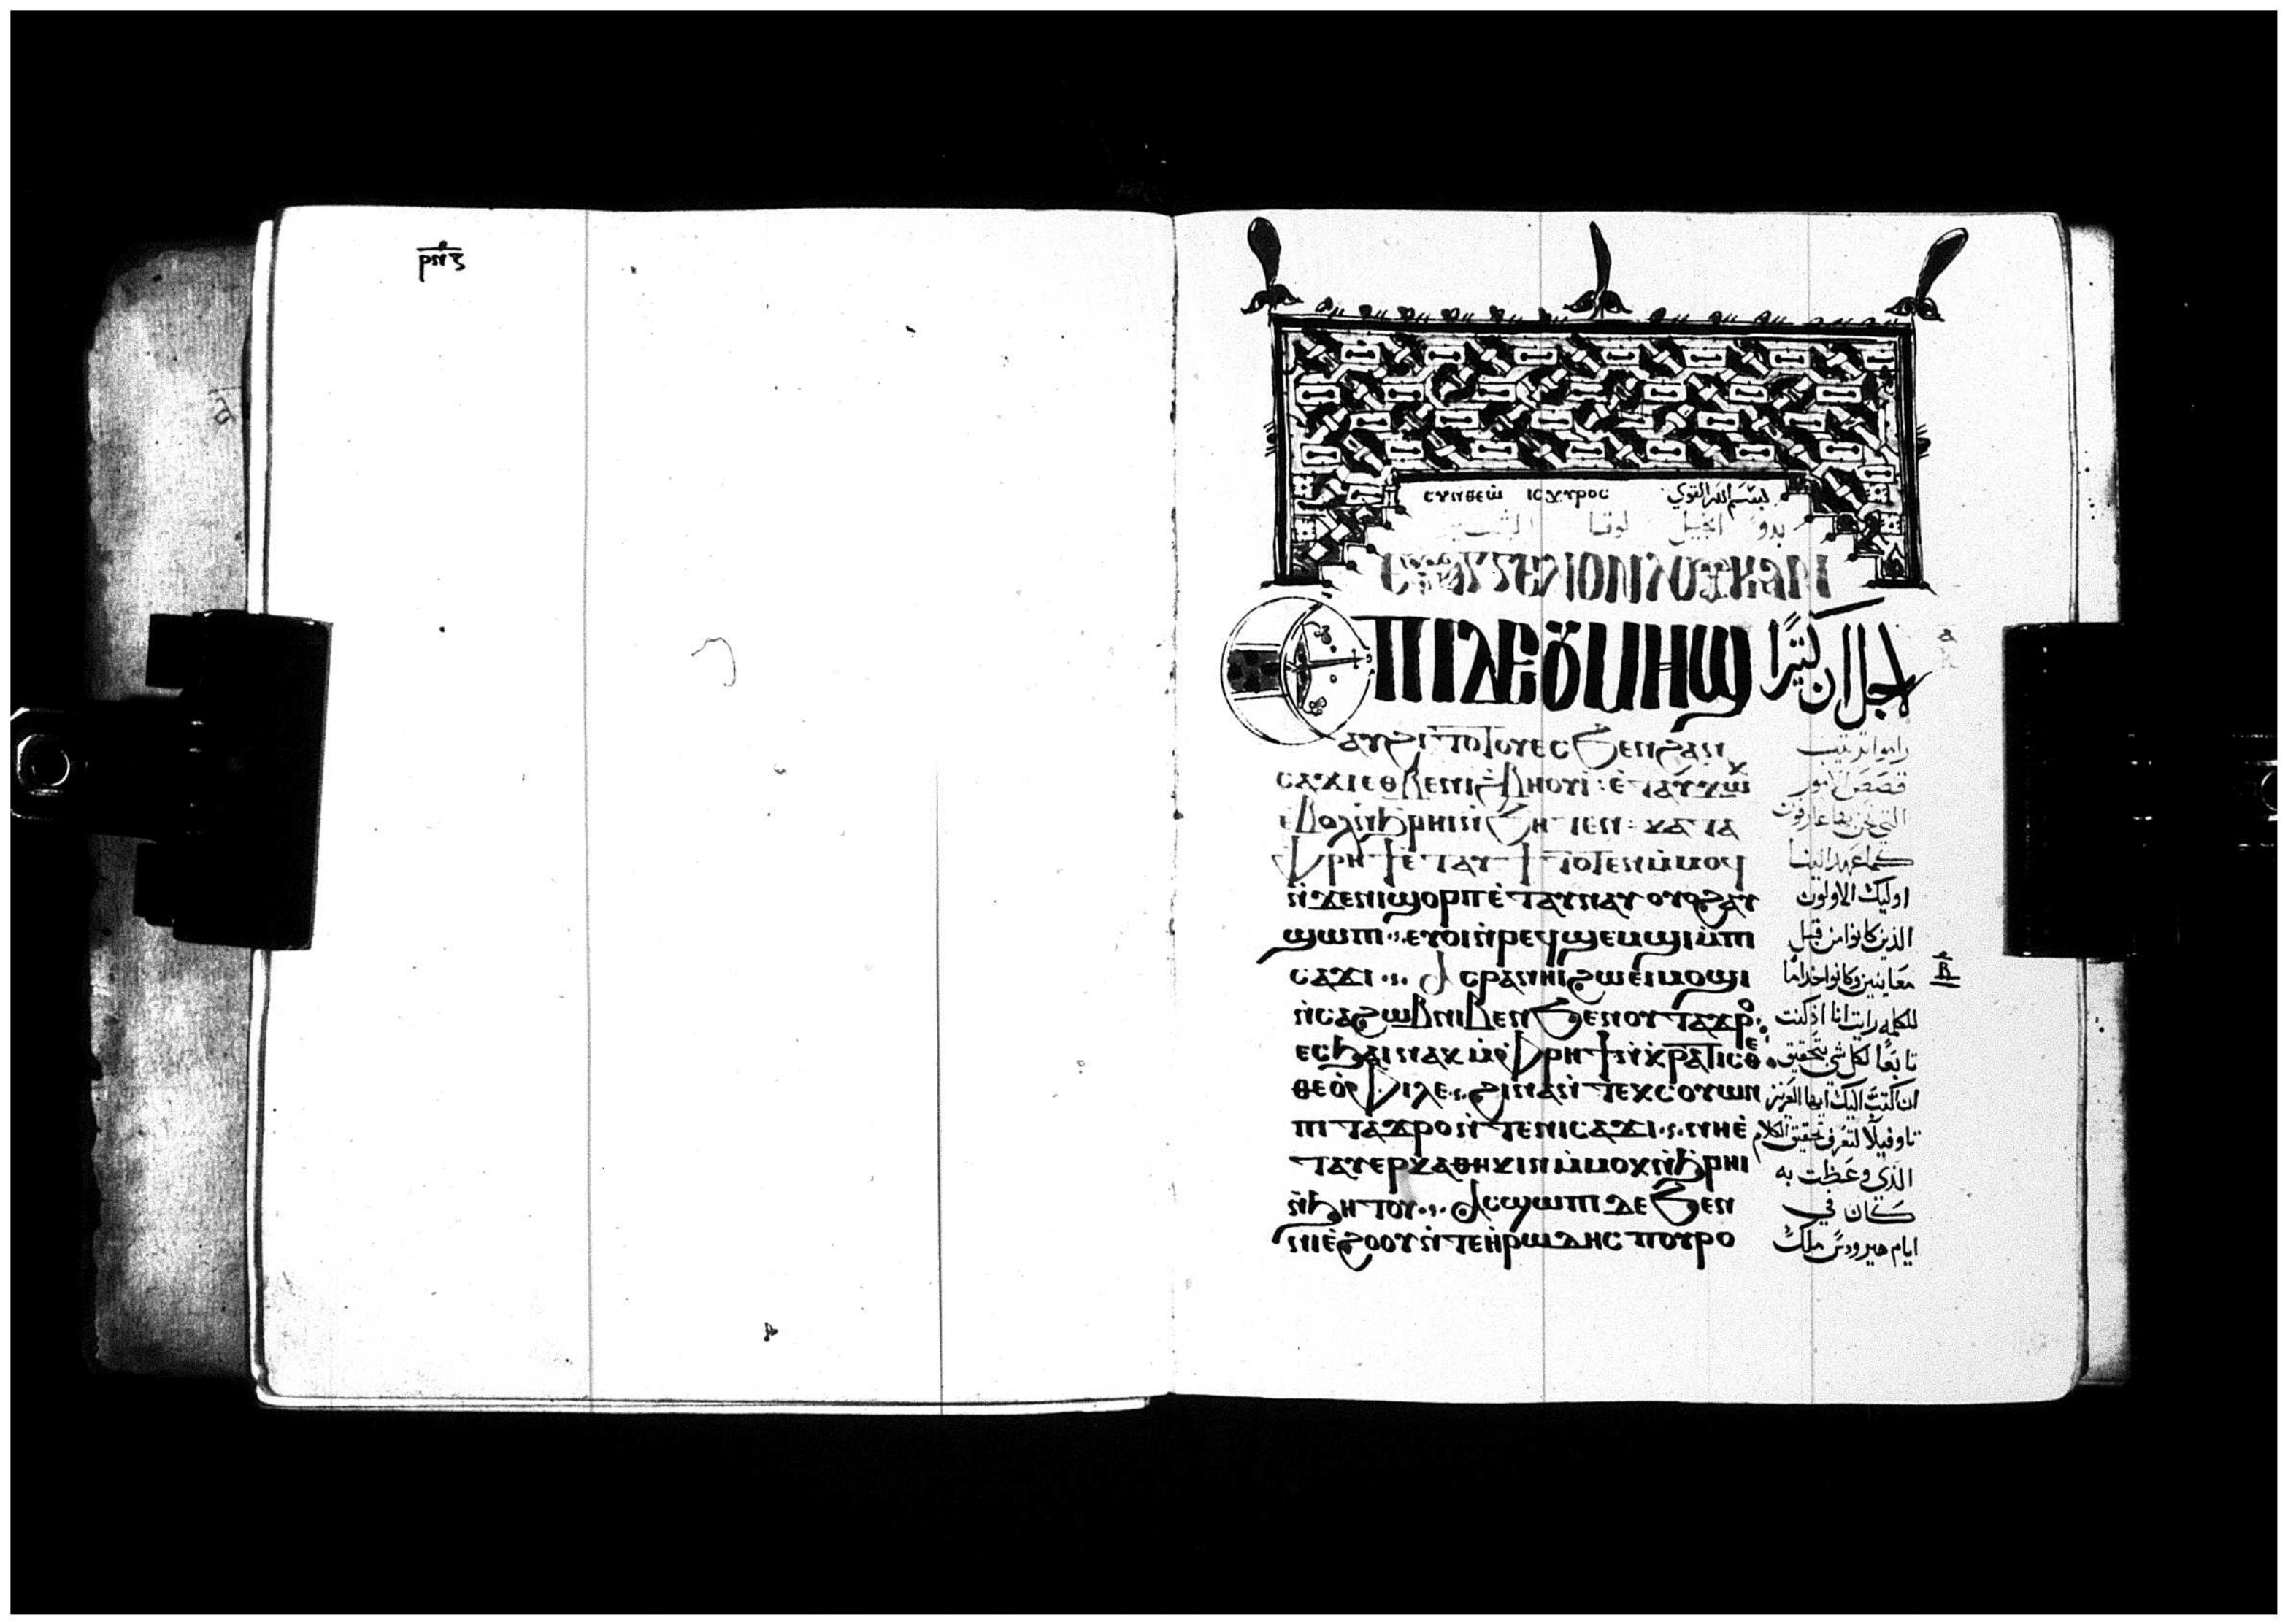 ⲣⲛⲍ
ⲥⲩⲛⲑⲉⲱ̇ ⲓⲥⲭⲩⲣⲟⲥ بسم الله القوي
بدو انجيل لوقا
ⲉⲩⲁⲅⲅⲉⲗⲓⲟⲛ ⲗⲟⲩⲕⲁⲛ
ⲉⲡⲓⲇⲏ ⲟⲩⲙⲏϣ لاجل ان كثيرًا
ⲁⲩϩⲓⲧⲟⲧⲟⲩ ⲉⲥϧⲉⲛϩⲁⲛ راموا ترتيب
ⲥⲁϫⲓ ⲉⲑⲃⲉⲛⲓϩⲃⲏⲟⲩⲓ̀: ⲉ̀ⲧⲁⲩϫⲱⲕ قصص الامور
ⲉ̀ⲃⲟⲗ ⲛ̀ϧⲣⲏⲓ ⲛ̀ϧⲏⲧⲉⲛ: ⲕⲁⲧⲁ التي نحن بها عارفون
ⲫⲣⲏϯ ⲉ̀ⲧⲁⲩϯⲧⲟⲧⲉⲛ ⲙ̀ⲙⲟϥ كما عهد الينا
ⲛ̀ϫⲉⲛⲓϣⲟⲣⲡ ⲉ̀ⲧⲁⲩⲛⲁⲩ ⲟⲩⲟϩ ⲁⲩ اوليك الاولون
ϣⲱⲡⲓ ⲉⲩⲟⲓ ⲛ̀ⲣⲉϥϣⲉⲙϣⲓ ⲙ̀ⲡⲓ الذين كانوا من قبل
ⲥⲁϫⲓ ⲁⲥⲣⲁⲛⲏⲓ ϩⲱ ⲉⲓⲙⲟϣⲓ معاينين وكانوا خدامًا
ⲃ̅
ⲛ̀ⲥⲁϩⲱⲃ ⲛⲓⲃⲉⲛ ϧⲉⲛⲟⲩⲧⲁϫⲣⲟ للكلمه رايت انا اذ كنت
ⲉⲥϧⲁⲓ ⲛⲁⲕ ⲙ̀ⲫⲣⲏϯ ⲛ̀ⲕⲣⲁⲧⲓⲥⲑⲉ تابعًا لكل شي بتحقيق
ⲑⲉⲟ̀ⲫⲓⲗⲉ ϩⲓⲛⲁ ⲛ̀ⲧⲉⲕⲥⲟⲩⲱⲛ ان اكتب اليك ايها العزيز
ⲡⲓⲧⲁϫⲣⲟ ⲛ̀ⲧⲉⲛⲓⲥⲁϫⲓ ⲛⲏⲉ̀ تاوفيلا لتعرف تحقيق الكلام
ⲧⲁⲩⲉⲣⲕⲁⲑⲏⲕⲓⲛ ⲙ̀ⲙⲟⲕ ⲛ̀ϧⲣⲏⲓ الذي وعظت به
ⲛ̀ϧⲏⲧⲟⲩ ⲁⲥϣⲱⲡⲓ ⲇⲉ ϧⲉⲛ كان في
ⲛⲓⲉ̀ϩⲟⲟⲩ ⲛ̀ⲧⲉⲏ̀ⲣⲱⲇⲏⲥ ⲡⲟⲩⲣⲟ ايام هيرودس ملك